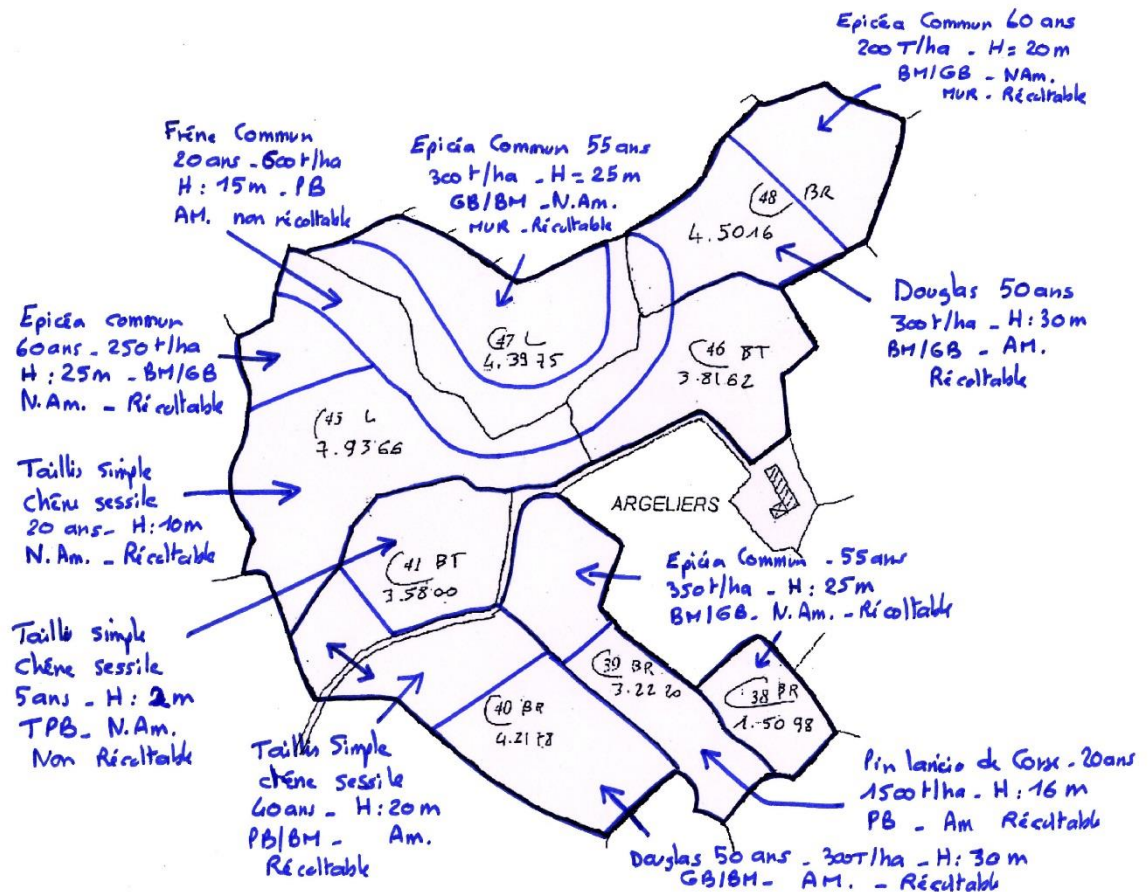 Epicéa Commun 60 ans
200 T/ha - H = 20 m
BM/GB - NAm.
MUR - Récoltable
Frêne Commun
20 ans - 600 t/ha
H : 15 m - PB
AM. non récoltable
Epicéa Commun 55 ans
300 t/ha - H = 25 m
GB/BM - N.Am.
MUR - Récoltable
48 BR
4.5016
Douglas 50 ans
300 t/ha - H : 30 m
BM/GB - AM.
Récoltable
Epicéa commun
60 ans - 250 t/ha
H : 25 m - BM/GB
N.Am. - Récoltable
47 L
4.3975
46 BT
3.8162
45 L
7.9366
Taillis simple
chêne sessile
20 ans - H : 10 m
N.Am. - Récoltable
ARGELIERS
41 BT
3.5800
Epicéa Commun - 55 ans
350 t/ha - H : 25 m
BM/GB - N.Am. - Récoltable
Taillis simple
chêne sessile
5 ans - H : 2 m
TPB - N.Am.
Non Récoltable
39 BR
3.2220
38 BR
1.5098
40 BR
Taillis Simple
chêne sessile
40 ans - H : 20 m
PB/BM - Am.
Récoltable
Pin laricio de Corse - 20 ans
1500 t/ha - H : 16 m
PB - Am Récoltable
Douglas 50 ans - 300 T/ha - H : 30 m
GB/BM - AM. - Récoltable